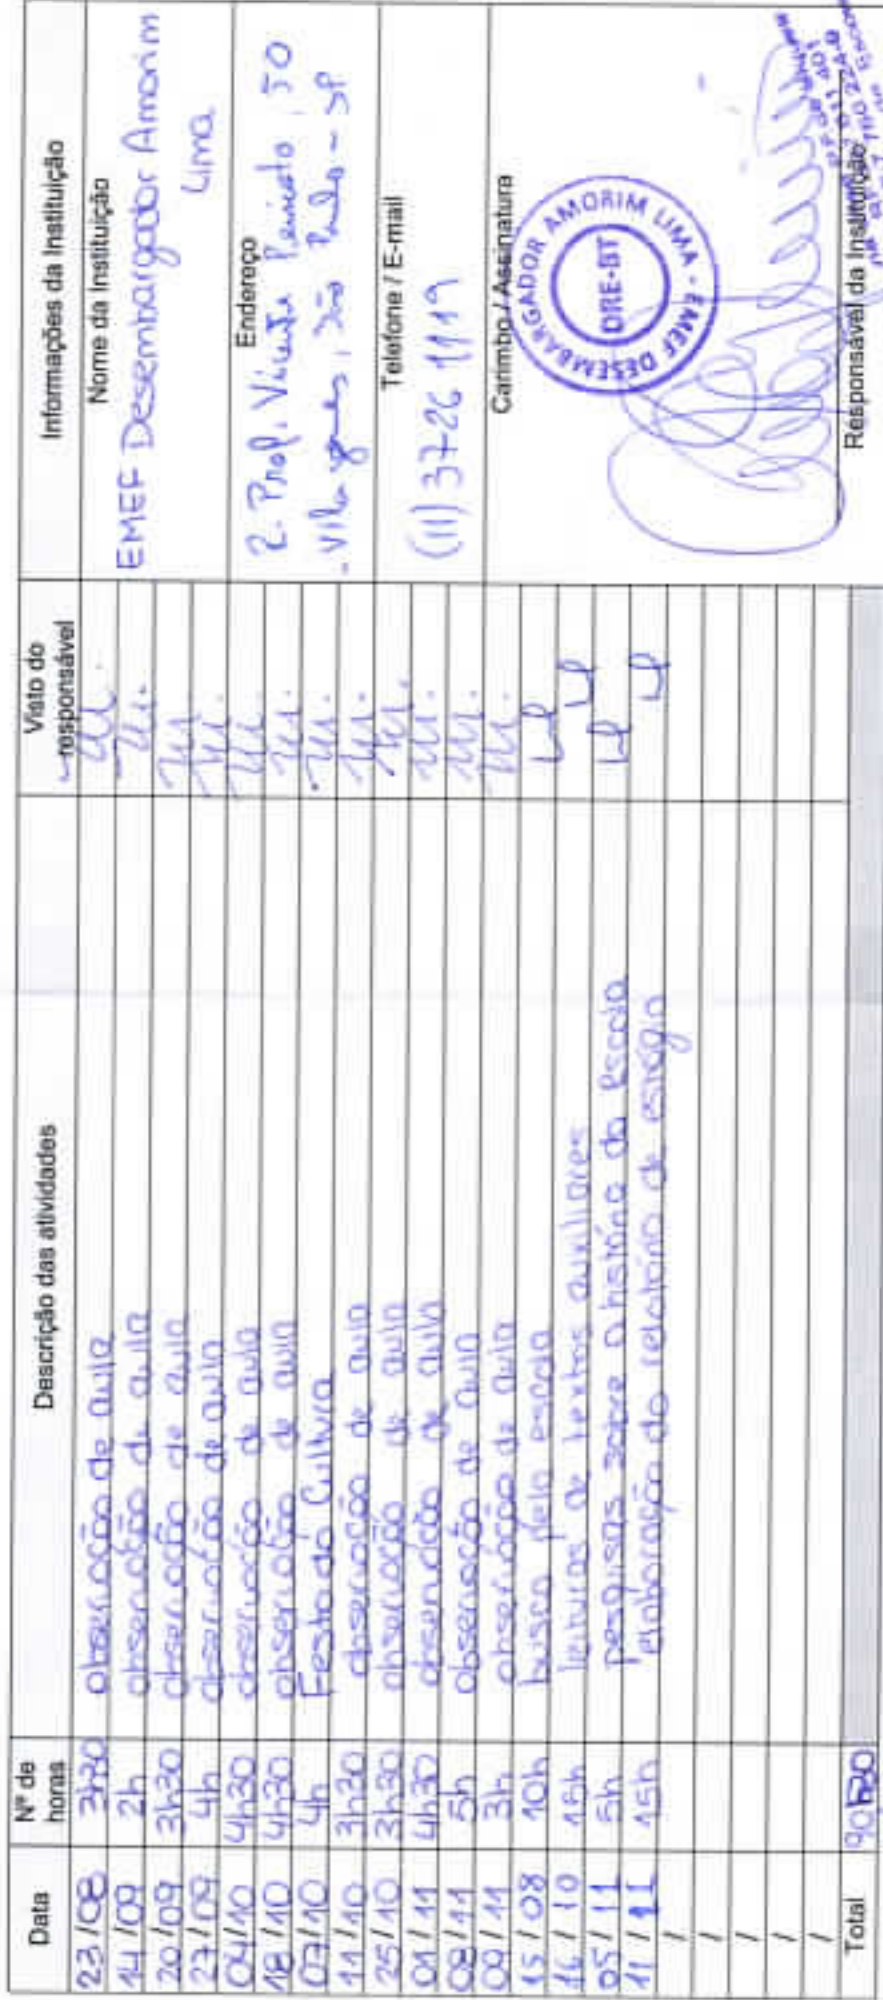 Data Nº de horas Descrição das atividades Visto do responsável Informações da Instituição
23/08 3h30 observação de aula
14/09 2h observação de aula
20/09 3h30 observação de aula
27/09 4h observação de aula
04/10 4h30 observação de aula
18/10 4h30 observação de aula
07/10 4h Festa da Cultura
11/10 3h30 observação de aula
25/10 3h30 observação de aula
01/11 4h30 observação de aula
08/11 5h observação de aula
09/11 3h observação de aula
15/08 10h busca pela escola
16/10 15h leituras de textos auxiliares
05/11 5h pesquisas sobre a história da escola
11/11 15h elaboração do relatório de estágio
/
/
/
/
/
Total 90h30
Nome da Instituição
EMEF Desembargador Amorim
Lima
Endereço
Prof. Vicente 50
São Paulo - SP
Telefone / E-mail
(11) 3726 1119
Carimbo / Assinatura
EMEF DESEMBARGADOR AMORIM LIMA
DRE-BT
Responsável da Instituição